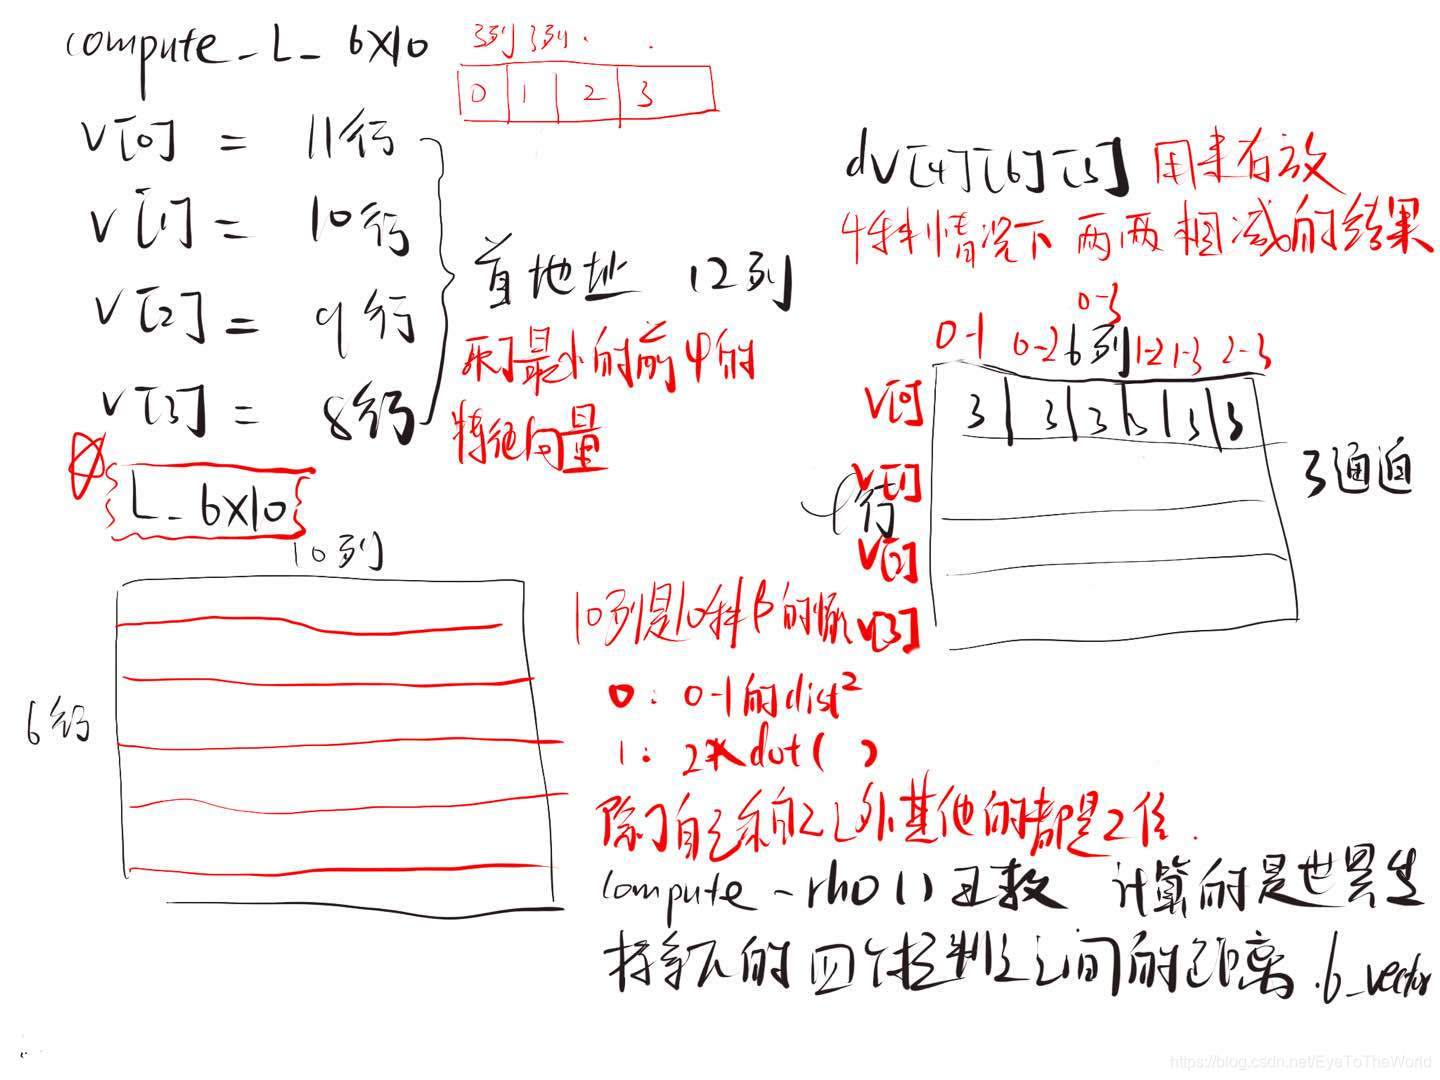 compute_L_6X10
3列 3列 . .
0 1 2 3
V[0] = 11行
V[1] = 10行
V[2] = 9行
V[3] = 8行
首地址 12列
最小的前4的
特征向量
L_6X10
10列
6行
dV[4][6][3] 用来存放
4种情况下 两两相减的结果
0-1 0-2 0-3 1-2 1-3 2-3
6列
V[0]
V[1]
V[2]
V[3]
3 3 3 3 3 3
4行
3通道
10列是10种β的
0: 0-1的dist²
1: 2*dot( )
除了自己和自己以外其他的都是2倍.
compute_rho()函数 计算的是世界坐
标系下的四个控制点之间的距离.6_vector
https://blog.csdn.net/EyeToTheWorld